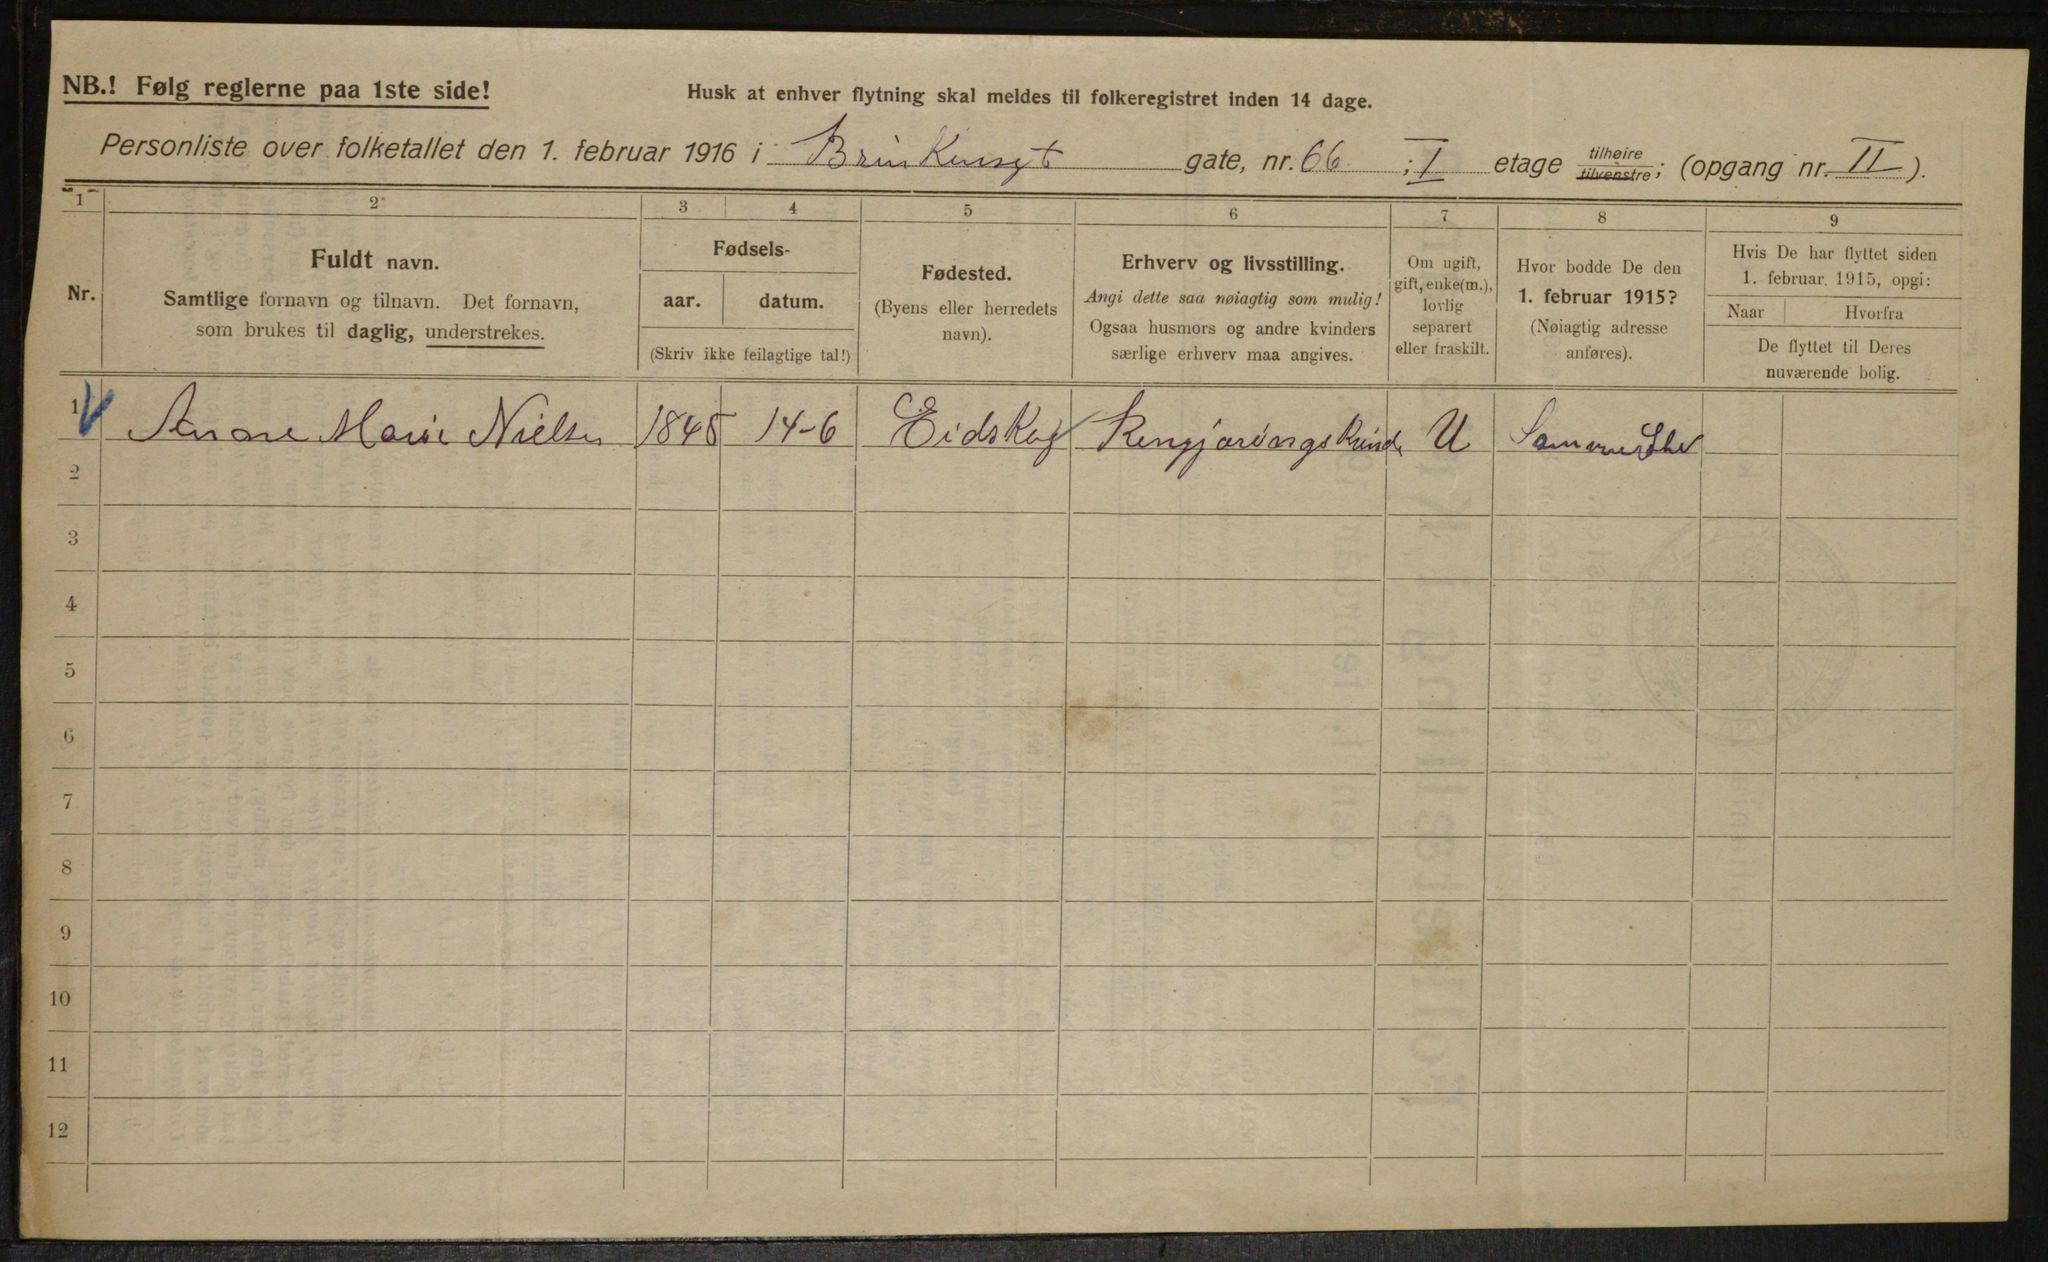 NB.! Følg reglerne paa 1ste side!
Husk at enhver flytning skal meldes til folkeregistret inden 14 dage.
Personliste over folketallet den 1. februar 1916 i Brinkensgt gate, nr. 66 ; I etage tilhøire tilvenstre; (opgang nr. II).
1 2 3 4 5 6 7 8 9
Nr.
Fuldt navn.
Samtlige fornavn og tilnavn. Det fornavn,
som brukes til daglig, understrekes.
Fødsels-
aar. datum.
(Skriv ikke feilagtige tal!)
Fødested.
(Byens eller herredets
navn).
Erhverv og livsstilling.
Angi dette saa nøiagtig som mulig!
Ogsaa husmors og andre kvinders
særlige erhverv maa angives.
Om ugift,
gift, enke(m.),
lovlig
separert
eller fraskilt.
Hvor bodde De den
1. februar 1915?
(Nøiagtig adresse
anføres).
Hvis De har flyttet siden
1. februar 1915, opgi:
Naar Hvorfra
De flyttet til Deres
nuværende bolig.
1 Anne Marie Nielsen 1845 14-6 Eidskog Rengjøringskvinde U
2
3
4
5
6
7
8
9
10
11
12